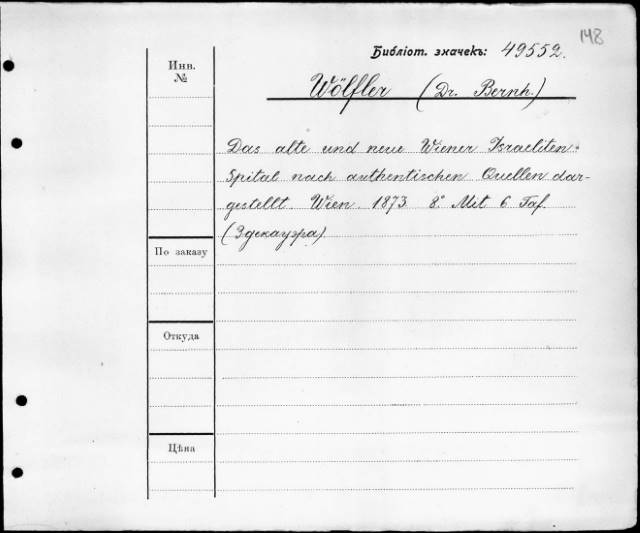 148
Библіот. значекъ: 49552.
Инв.
№
Wölfler (Dr. Bernh.)
Das alte und neue Wiener Israeliten-
Spital nach authentischen Quellen dar-
gestellt. Wien. 1873 8.° Mit 6 Taf.
(Эдекауэра).
По заказу
Откуда
Цѣна